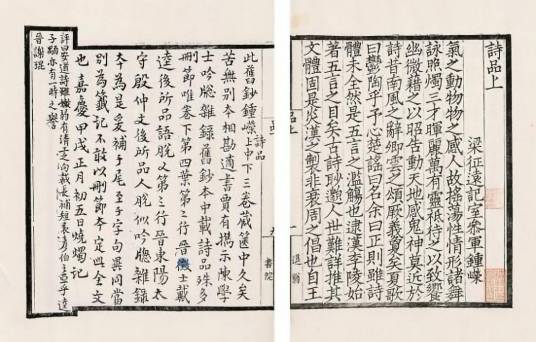 詩品上
梁征遠記室參軍鍾嶸
氣之動物物之感人故搖蕩性情形諸舞
詠照燭三才暉麗萬有靈祇待之以致饗
幽微藉之以昭告動天地感鬼神莫近於
詩昔南風之辭卿雲之頌厥義夐矣夏歌
曰鬱陶乎予心楚謠曰名余曰正則雖詩
體未全然是五言之濫觴也逮漢李陵始
著五言之目矣古詩眇邈人世難詳推其
文體固是炎漢之製非衰周之倡也自王
詩品
此舊鈔鍾嶸上中下三卷藏篋中久矣
苦無別本相勘適書賈有攜示陳學
士吟牕雜錄舊鈔本中載詩品殊多
刪節唯卷下第四葉第三行晉徵士戴
逵後所品語脫又第三行晉東陽太
守殷仲文後所品人脫似吟牕雜錄
本為是爰補于尾至于字句異同當
別為籤記不敢以刪節本定此全文
也嘉慶甲戌正月初五日燒燭記
評曰安道詩雖嫩弱有清上之句裁長補短袁彥伯之亞乎逵
子顒亦有一時之譽
晉謝琨
書院